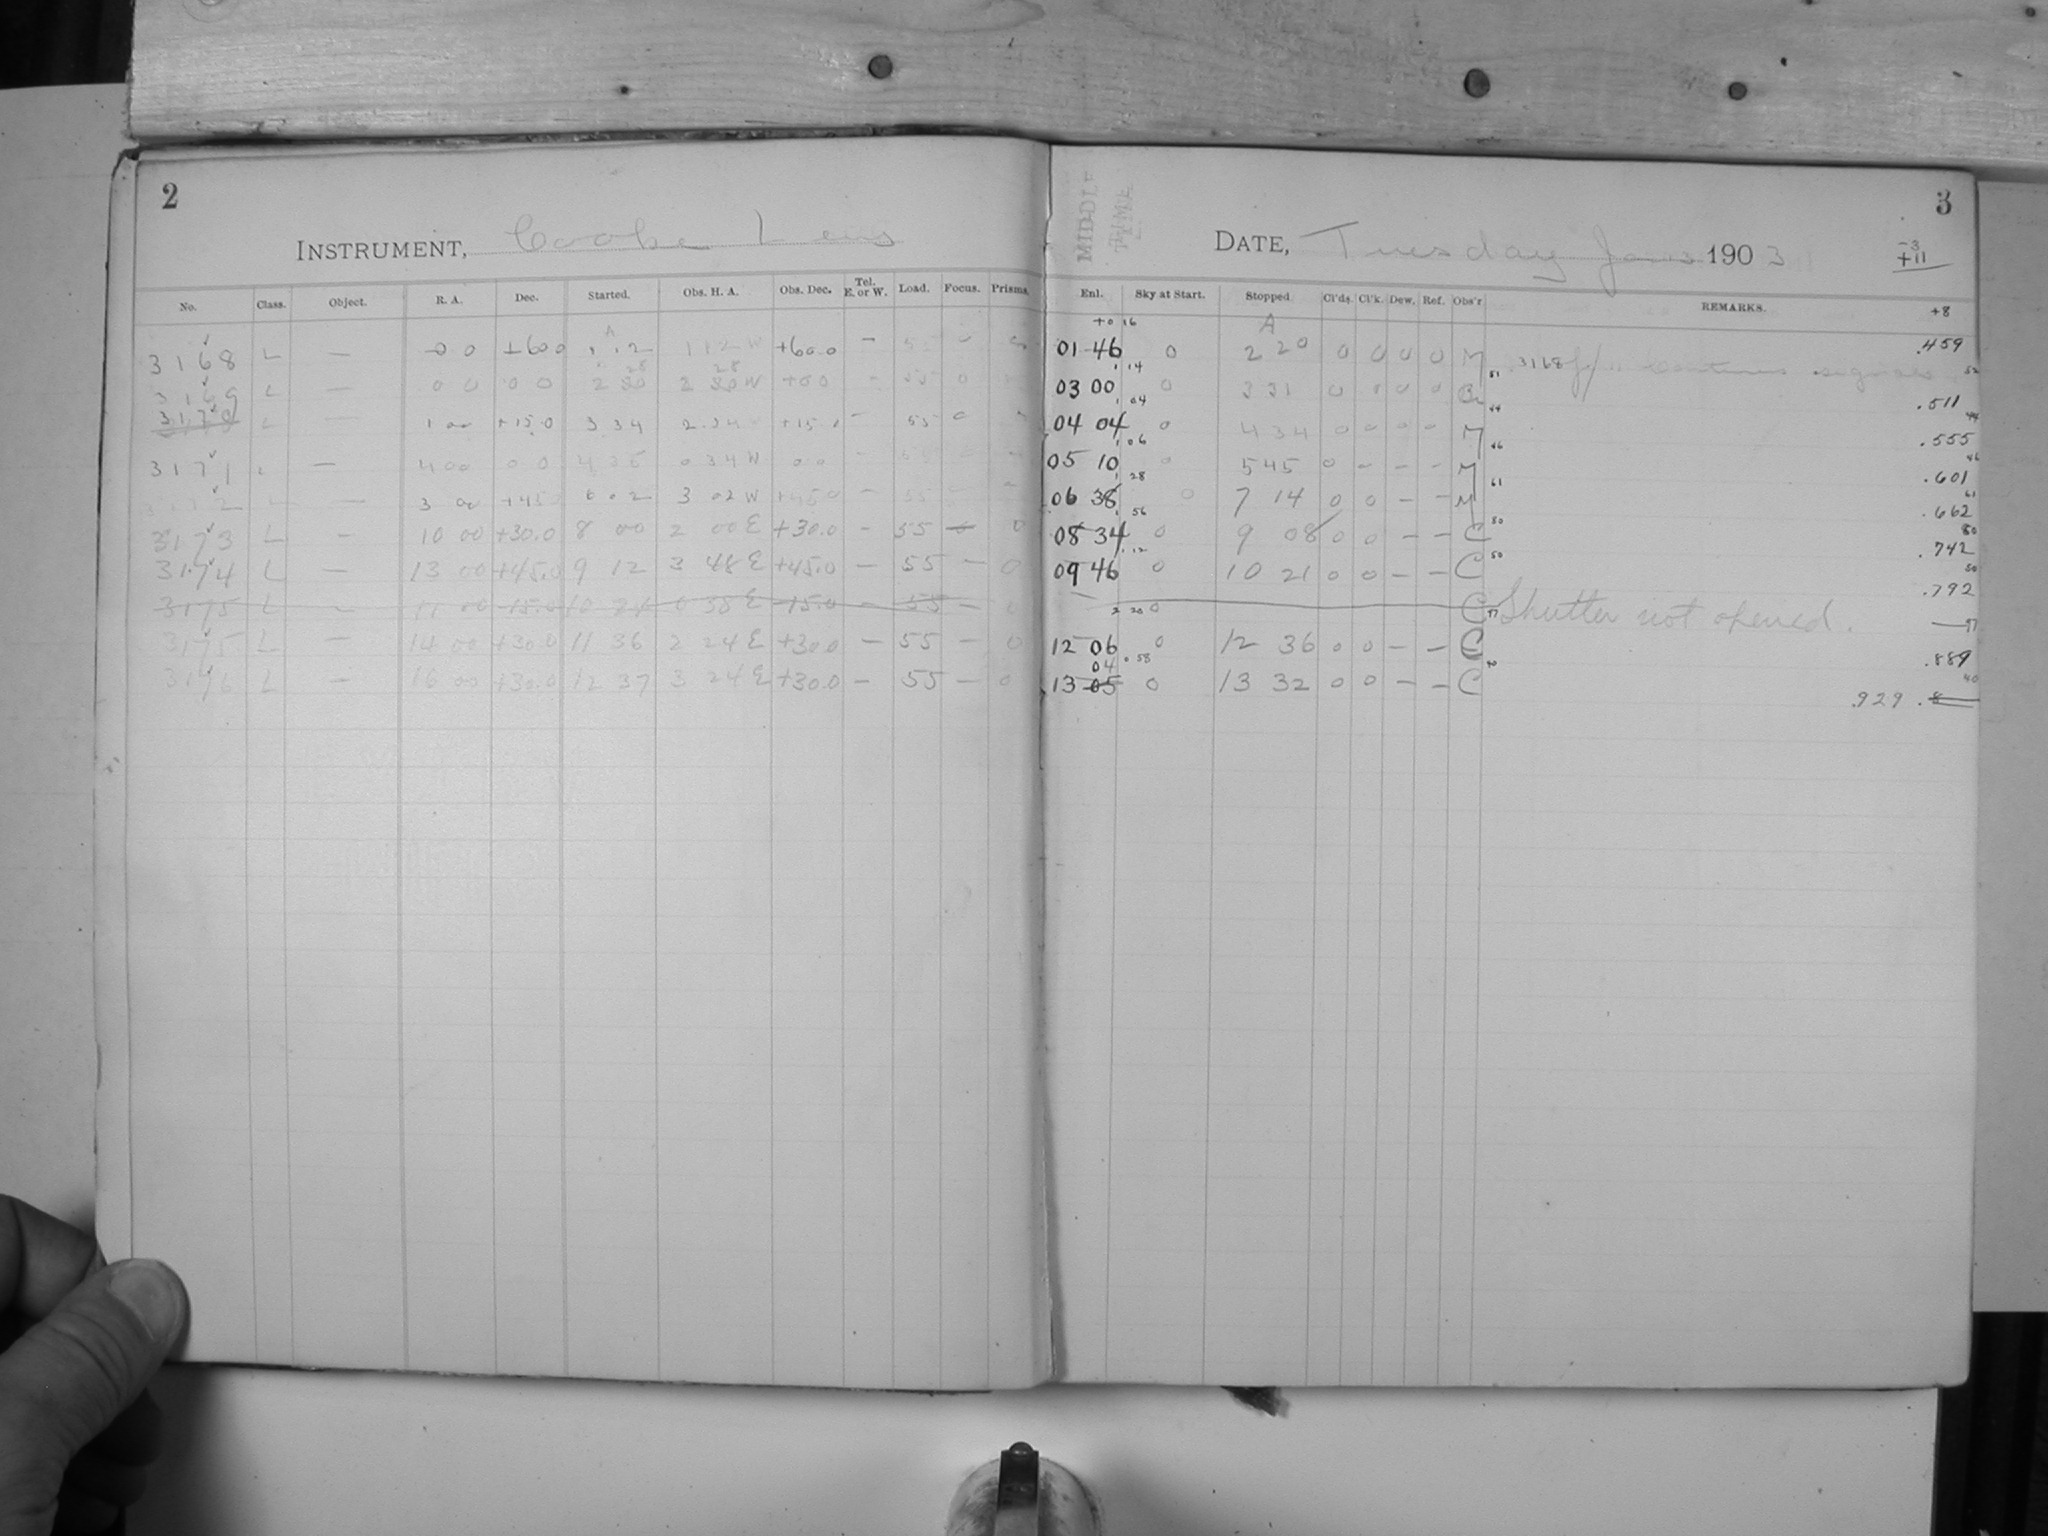 2
INSTRUMENT, Cooke Lens
No. Class. Object. R. A. Dec. Started. Obs. H. A. Obs. Dec. Tel. E. or W. Load. Focus. Prisms.
3168 L — 0 0 +60 0 1 12 1 12 W +60.0 —
3169 L — 0 0 0 0 2 2 W +00 — 55 0
3170 L — 1 00 +15.0 3 34 2 34 +15.0 — 55
3171 L — 4 00 0 0 4 35 0 34 W 0 0 —
L — 3 00 +45.0 6 02 3 02 W +45.0 — 55
3173 L — 10 00 +30.0 8 00 2 00 E +30.0 — 55 — 0
3174 L — 13 00 +45.0 9 12 3 48 E +45.0 — 55 — 0
3175 L — 11 00 -15.0 10 0 38 E -15.0 — 55 — 0
3175 L — 14 00 +30.0 11 36 2 24 E +30.0 — 55 — 0
3176 L — 16 00 +30.0 12 37 3 24 E +30.0 — 55 — 0
MIDDLE
TIME
3
DATE, Tuesday Jan 1903
-3
+11
Enl. Sky at Start. Stopped Cl'ds. Cl'k. Dew. Ref. Obs'r REMARKS. +8
+0 16 A
01 46 0 2 20 0 0 0 0 M 3168 .459
14 51 52
03 00 0 3 31 0 0 0 0 .511
04 44 44
04 04 0 4 34 0 0 0 0 M .555
06 46 46
05 10 0 5 45 0 — — — M .601
28 61 61
06 38 0 7 14 0 0 — — M .662
56 80 80
08 34 0 9 08 0 0 — — C .742
12 50 50
09 46 0 10 21 0 0 — — C .792
2 20 0 C 97 Shutter not opened. 97
12 06 0 12 36 0 0 — — C .889
04 58 40 40
13 05 0 13 32 0 0 — — C .929